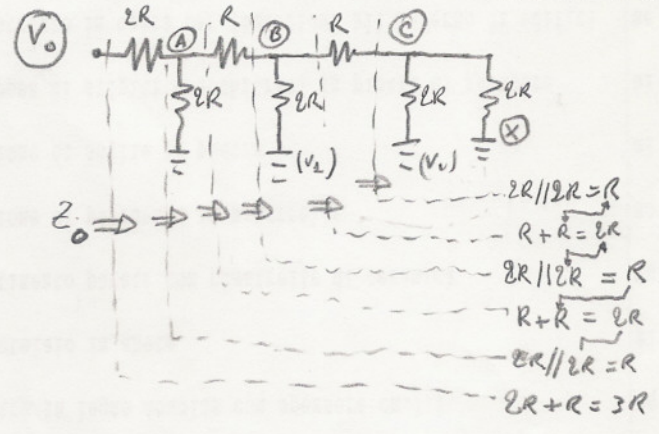 2R R R
V₀ A B C
2R 2R 2R 2R
(V₁) (V₀) X
Z₀
2R//2R = R
R + R = 2R
2R//2R = R
R + R = 2R
2R//2R = R
2R + R = 3R